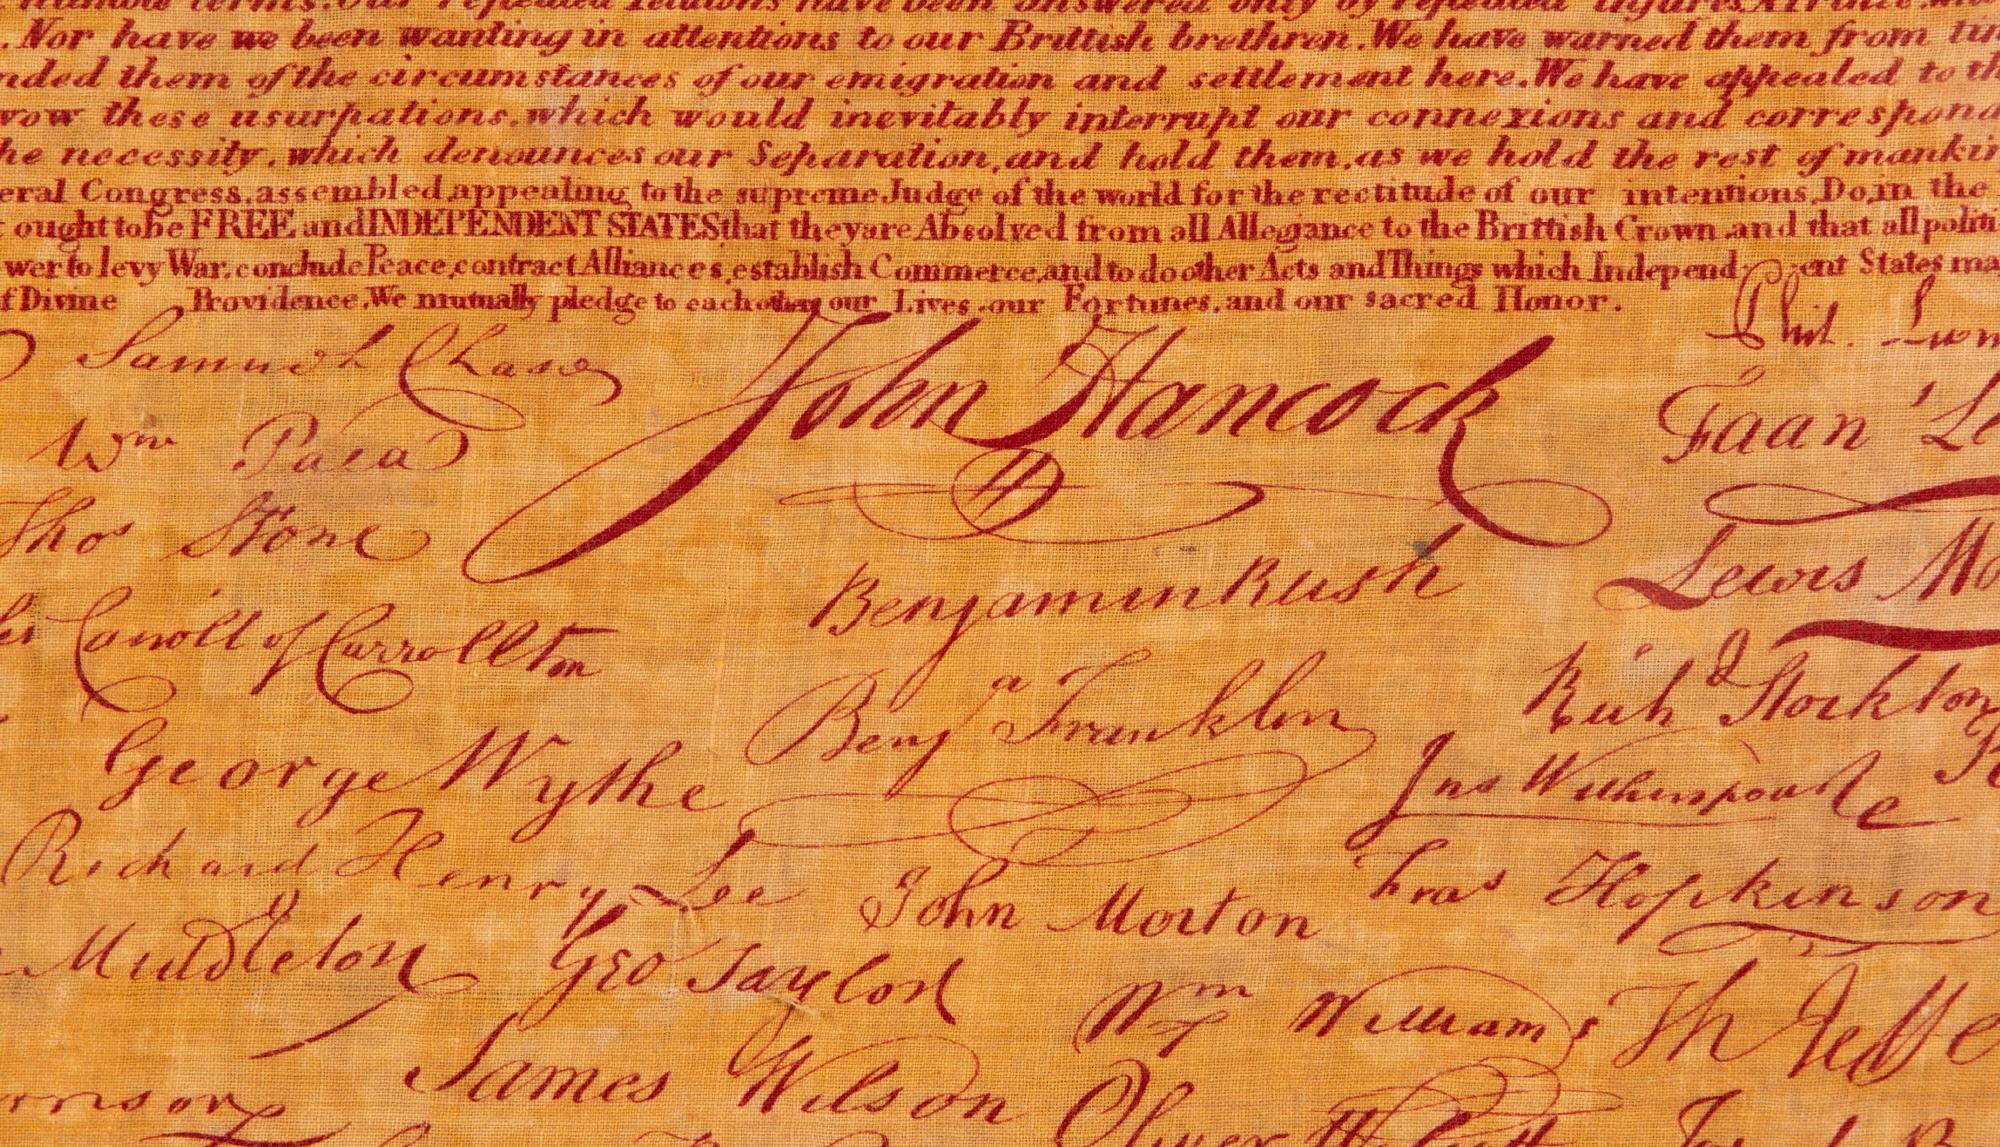 terms. Our repeated have been answered only by repeated injuries. A Prince.
. Nor have we been wanting in attentions to our Brittish brethren. We have warned them from tim
nded them of the circumstances of our emigration and settlement here. We have appealed to th
vow these usurpations, which would inevitably interrupt our connexions and correspond
he necessity, which denounces our Separation, and hold them, as we hold the rest of mankin
eral Congress, assembled, appealing to the supreme Judge of the world for the rectitude of our intentions, Do, in the
t ought to be FREE and INDEPENDENT STATES that they are Absolved from all Allegiance to the Brittish Crown, and that all politi
wer to levy War, conclude Peace, contract Alliances, establish Commerce, and to do other Acts and Things which Independent States ma
f Divine Providence, We mutually pledge to each other our Lives, our Fortunes, and our sacred Honor.
Samuel Chase
John Hancock
Phil. 
Wm Paca
Thos Stone
Benjamin Rush
Lewis Mo
Carroll of Carrollton
Benja Franklin
Richd Stockton
George Wythe
Jno Witherspoon
Richard Henry Lee
John Morton
Fras Hopkinson
Middleton
Geo Taylor
Wm Williams
Th Jeffe
James Wilson
Oliver Wolcott